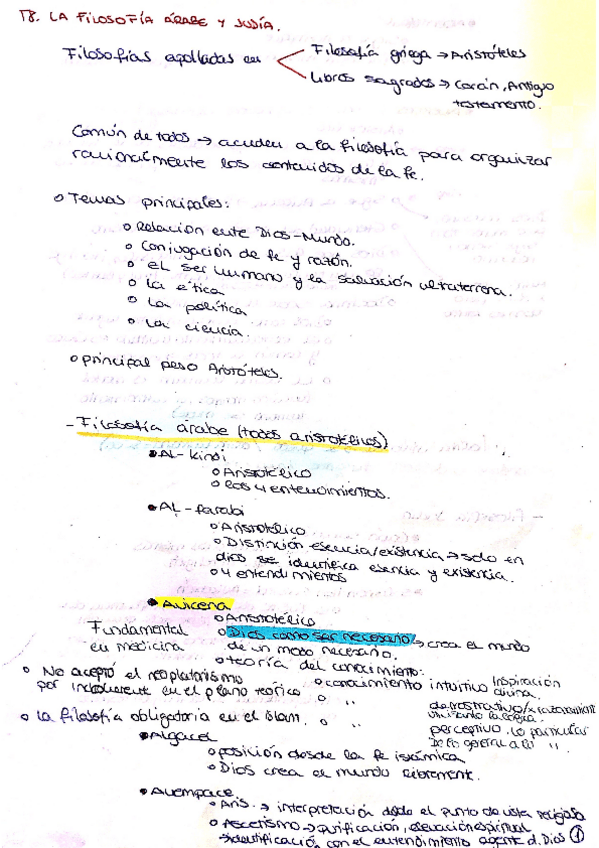 T8. LA FILOSOFÍA ÁRABE Y JUDÍA.
Filosofías apolladas en
Filosofía griega → Aristóteles
Libros sagrados → Corán, Antiguo
testamento.
Común de todos → acuden a la filosofía para organizar
racionalmente los contenidos de la fe.
o Temas principales:
o Relación entre Dios-Mundo.
o Conjugación de fe y razón.
o El ser humano y la salvación ultraterrena.
o La ética
o La política
o La ciencia.
o principal peso Aristóteles.
- Filosofía árabe (todos aristotélicos)
• AL-kindi
o Aristotélico
o Los 4 entendimientos.
• AL-farabi
o Aristotélico
o Distinción esencia/existencia → solo en
dios se identifica esencia y existencia.
o 4 entendimientos
• Avicena
o Aristotélico
Fundamental
en medicina
o Dios como ser necesario → crea el mundo
de un modo necesario.
o teoría del conocimiento:
o conocimiento intuitivo Inspiración
divina.
o " demostrativo/
utilizando la lógica.
o " perceptivo. Lo particular
De lo general a lo "
o No aceptó el neoplatonismo
por incoherente en el plano teórico
o la filosofía obligatoria en el islam.
• Algacel
o posición desde la fe islámica
o Dios crea el mundo libremente.
• Avempace
o Aris. → interpretación desde el punto de vista religioso
o Ascetismo → purificación, elevación espiritual
→ identificación con el entendimiento agente d. Dios
1